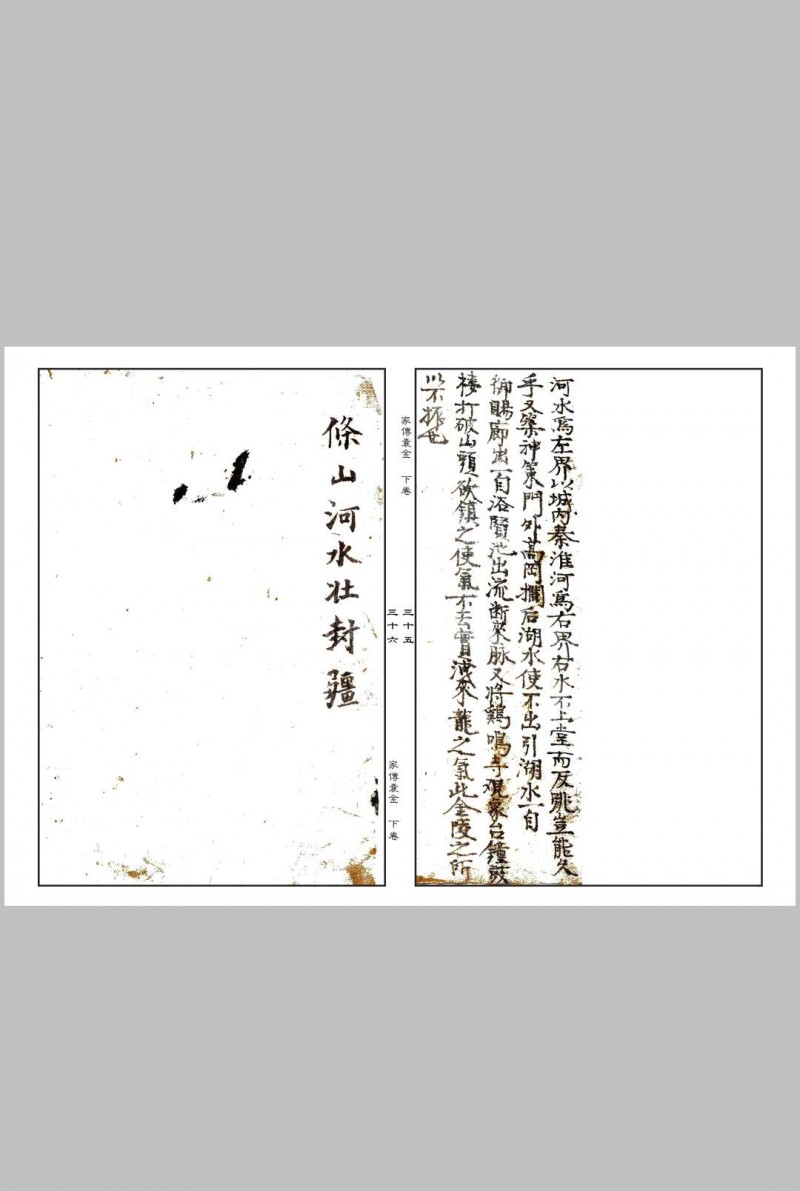 河水爲左界以城內秦淮河爲右界右水不上堂而反跳豈能久
乎又築神策門外高岡攔后湖水使不出引湖水一自
御賜廊出一自浴賢池出流斷來脉又將鷄鳴寺觀象台鐘鼓
樓打破山頭欲鎮之使氣不去實洩來龍之氣此金陵之所
以不振也
家傳袠金 下卷
三十五
三十六
家傳袠金 下卷
條山河水壯封疆